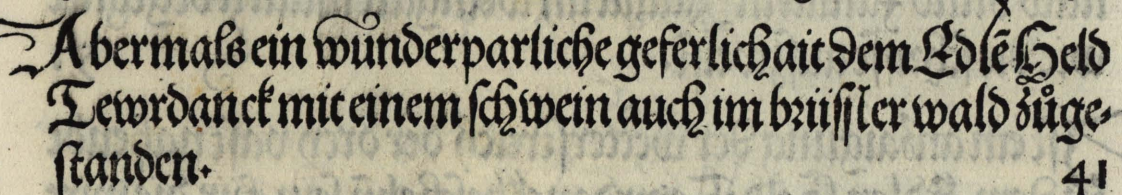 Abermals ein wunderparliche geferlichait dem Edlẽ Held
Tewrdanck mit einem schwein auch im brüssler wald zůge-
standen. 41